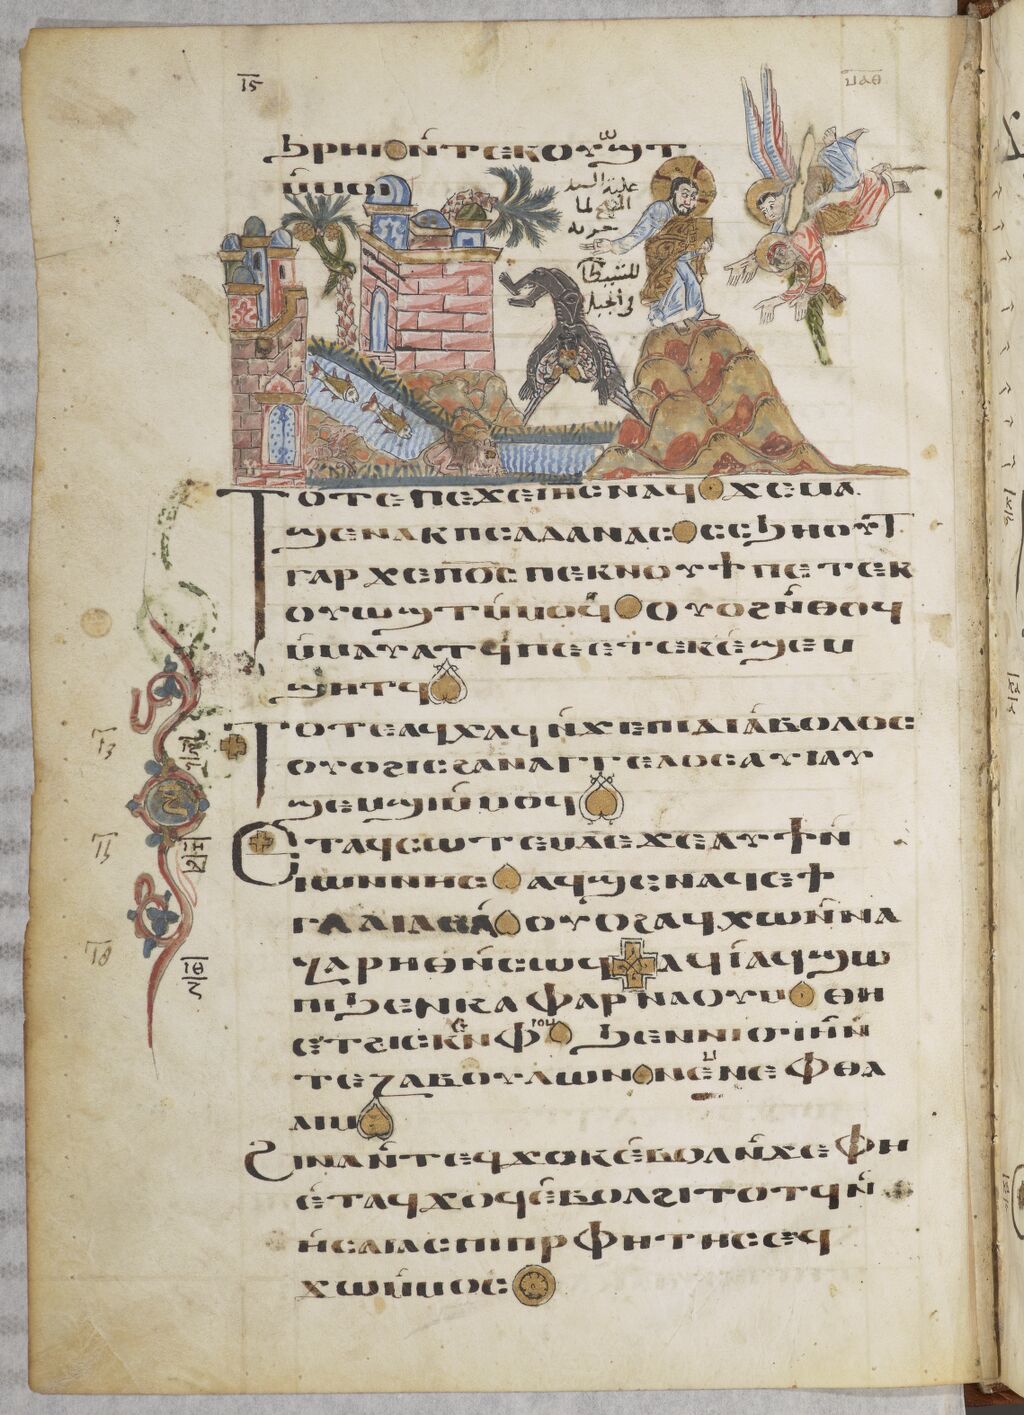 ⲓ̅ⲋ̅
ⲙⲁⲑ
ϧⲣⲏⲓ ⲛ̀ⲧⲉⲕⲟⲩⲱϣⲧ
ⲙ̀ⲙⲟⲓ
علبة السيد
المسيح لما
جربه
للشيطان
في الجبل
ⲧⲟⲧⲉ ⲡⲉϫⲉ ⲓⲏⲥ ⲛⲁϥ ϫⲉ ⲙⲁ
ϣⲉⲛⲁⲕ ⲡⲥⲁⲇⲁⲛⲁⲥ ⲥⲥϧⲏⲟⲩⲧ
ⲅⲁⲣ ϫⲉ ⲡⲟⲥ ⲡⲉⲕⲛⲟⲩϯ ⲡⲉⲧⲉⲕ
ⲟⲩⲱϣⲧ ⲙ̀ⲙⲟϥ ⲟⲩⲟϩ ⲛ̀ⲑⲟϥ
ⲙ̀ⲙⲁⲩⲁⲧϥ ⲡⲉⲉⲧⲉⲕⲉ̀ϣⲉⲙ
ϣⲏⲧϥ
ⲧⲟⲧⲉ ⲁϥⲭⲁϥ ⲛ̀ϫⲉ ⲡⲓⲇⲓⲁⲃⲟⲗⲟⲥ
ⲟⲩⲟϩ ⲓⲥ ϩⲁⲛⲁⲅⲅⲉⲗⲟⲥ ⲁⲩⲓ ⲁⲩ
ϣⲉⲙϣⲓ ⲙ̀ⲙⲟϥ
ⲉⲧⲁϥⲥⲱⲧⲉⲙ ⲇⲉ ϫⲉ ⲁⲩϯ ⲛ̀
ⲓⲱⲛⲛⲏⲥ ⲁϥϣⲉⲛⲁϥ ⲉϯ
ⲅⲁⲗⲓⲗⲉⲁ ⲟⲩⲟϩ ⲁϥⲭⲱ ⲛ̀ⲛⲁ
ⲍⲁⲣⲏⲑ ⲛ̀ⲥⲱϥ ⲁϥⲓ̀ ⲁϥϣⲱ
ⲡⲓ ϧⲉⲛ ⲕⲁⲫⲁⲣⲛⲁⲟⲩⲙ ⲑⲏ
ⲉⲧϩⲓⲥⲕⲉⲛ ⲫⲓⲟⲙ ϧⲉⲛ ⲛⲓϭⲓⲏ ⲛ̀
ⲧⲉ ⲍⲁⲃⲟⲩⲗⲱⲛ ⲛⲉⲙ ⲛⲉⲫⲑⲁ
ⲗⲓⲙ
ϩⲓⲛⲁ ⲛ̀ⲧⲉϥϫⲱⲕ ⲉ̀ⲃⲟⲗ ⲛ̀ϫⲉ ⲫⲏ
ⲉ̀ⲧⲁϥϫⲟϥ ⲉ̀ⲃⲟⲗϩⲓⲧⲟⲧϥ ⲛ̀
ⲏ̀ⲥⲁⲓⲁⲥ ⲡⲓⲡⲣⲫⲏⲧⲏⲥ ⲉϥ
ϫⲱ ⲙ̀ⲙⲟⲥ
ⲓⲏ
ⲓⲑ